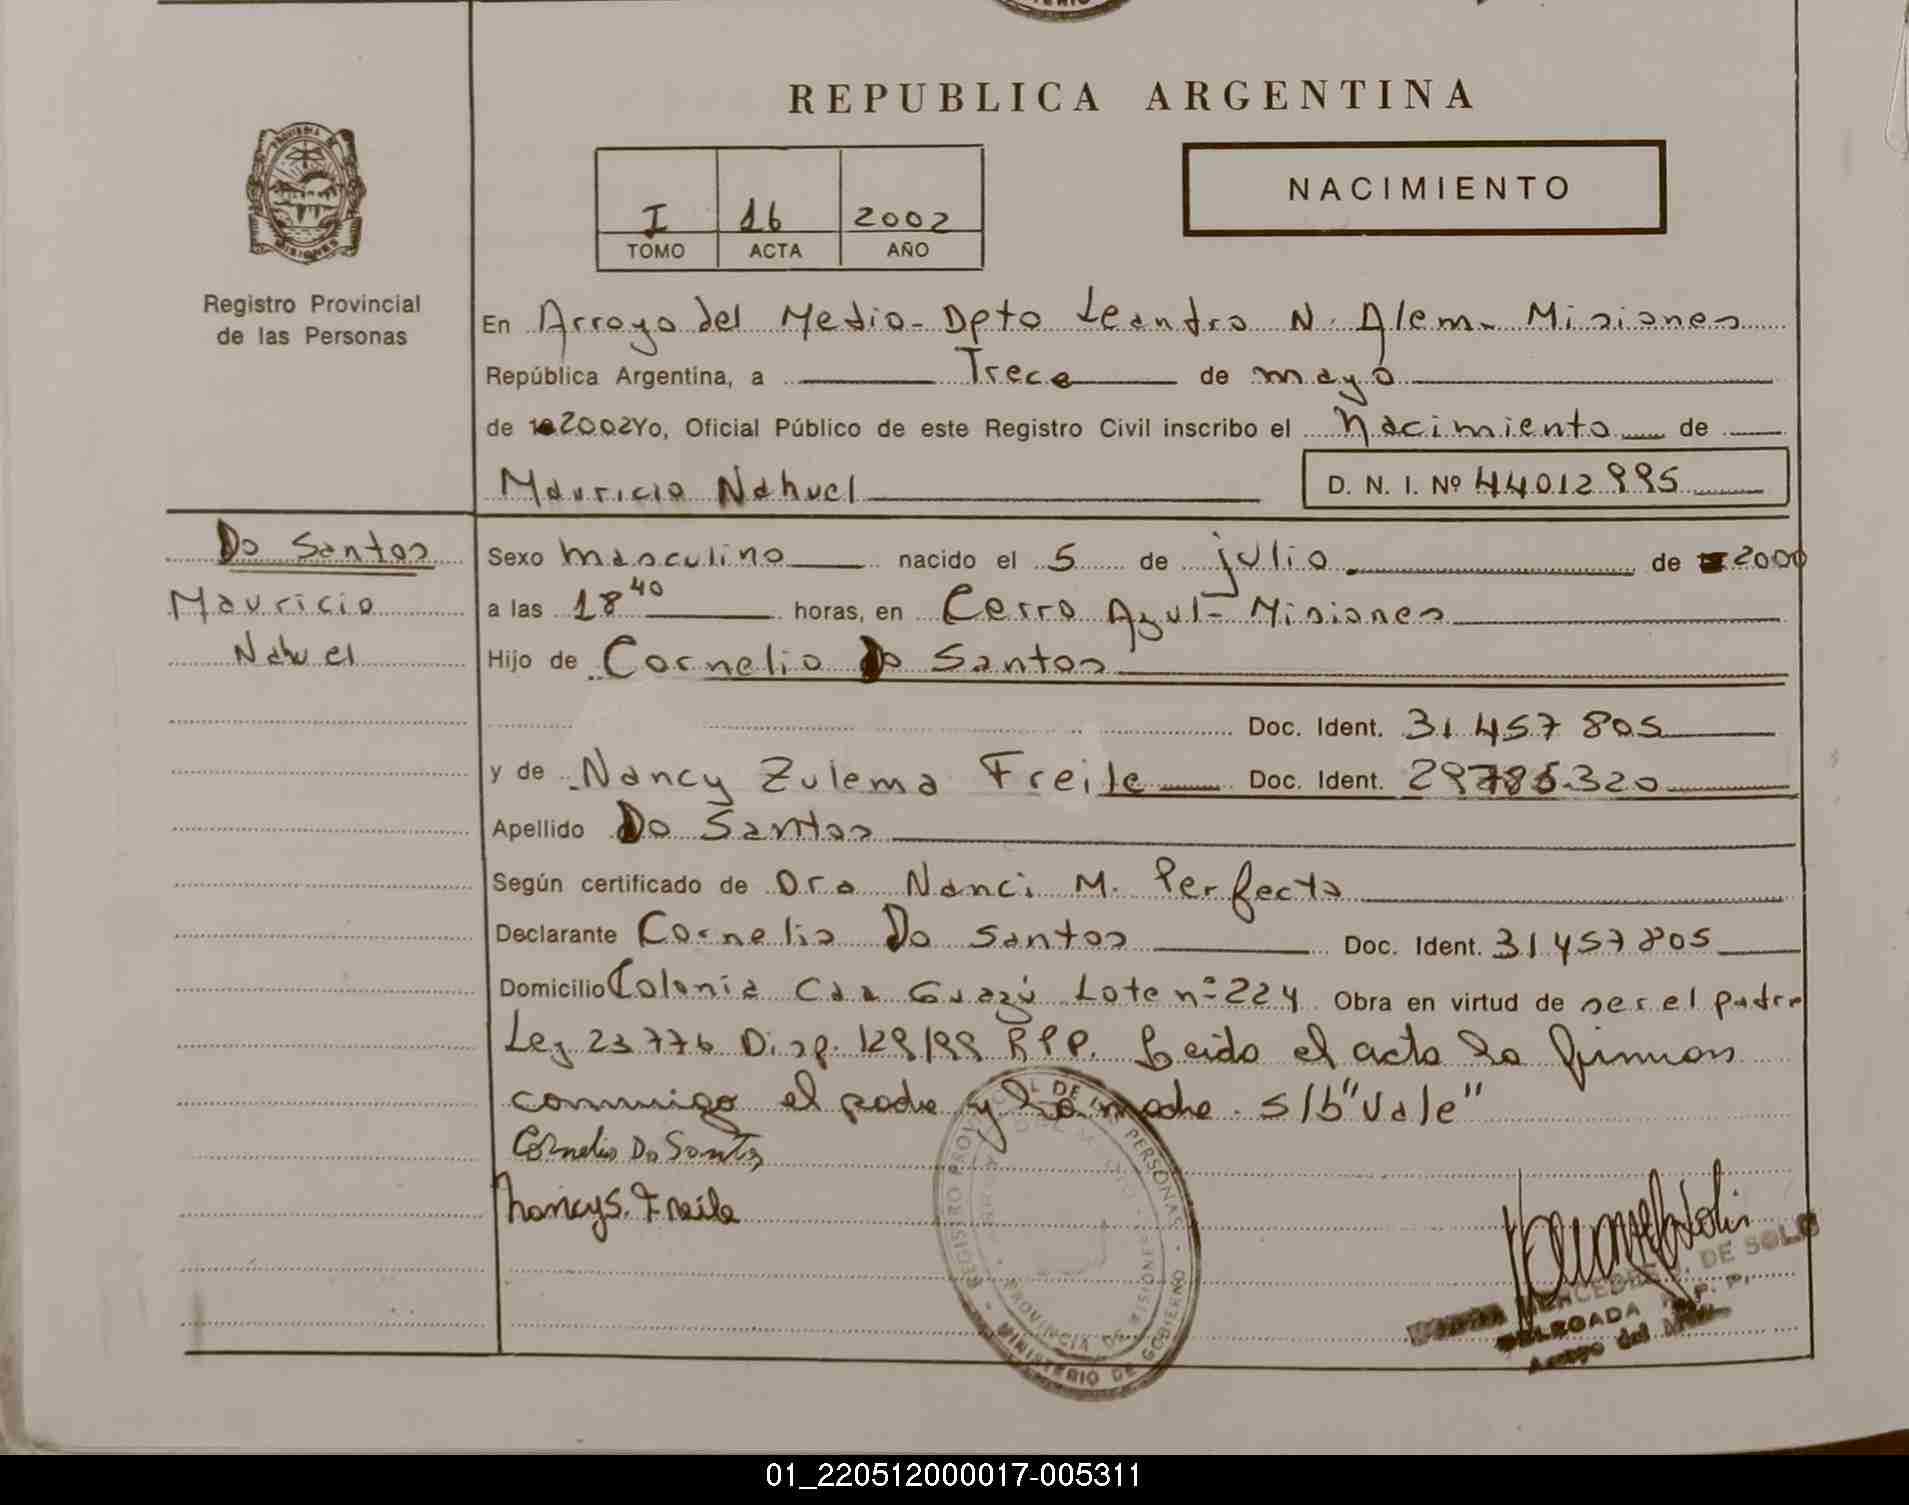 REPUBLICA ARGENTINA
NACIMIENTO
I 16 2002
TOMO ACTA AÑO
PROVINCIA DE MISIONES
Registro Provincial
de las Personas
En Arroyo del Medio - Dpto Leandro N. Alem - Misiones
República Argentina, a Trece de mayo
de 2002 Yo, Oficial Público de este Registro Civil inscribo el Nacimiento de
Mauricio Nahuel D. N. I. Nº 44012995
Do Santos
Mauricio
Nahuel
Sexo masculino nacido el 5 de julio de 2000
a las 18 40 horas, en Cerro Azul - Misiones
Hijo de Cornelio Do Santos
Doc. Ident. 31 457 805
y de Nancy Zulema Freile Doc. Ident. 320
Apellido Do Santos
Según certificado de Dra Nanci M. Perfecta
Declarante Cornelio Do Santos Doc. Ident. 31 457 805
Domicilio Colonia Caa Guazú Lote nº 224 Obra en virtud de ser el padre
Ley 23776 Disp. 129/99 RPP. Leido el acta la firman
conmigo el padre y la madre. S/b "Vale"
Cornelio Do Santos
Nancy S. Freile
REGISTRO PROVINCIAL DE LAS PERSONAS
PROVINCIA DE MISIONES
MINISTERIO DE GOBIERNO
MERCEDES DE SOLIS
DELEGADA R. P. P.
Arroyo del Medio
01_220512000017-005311